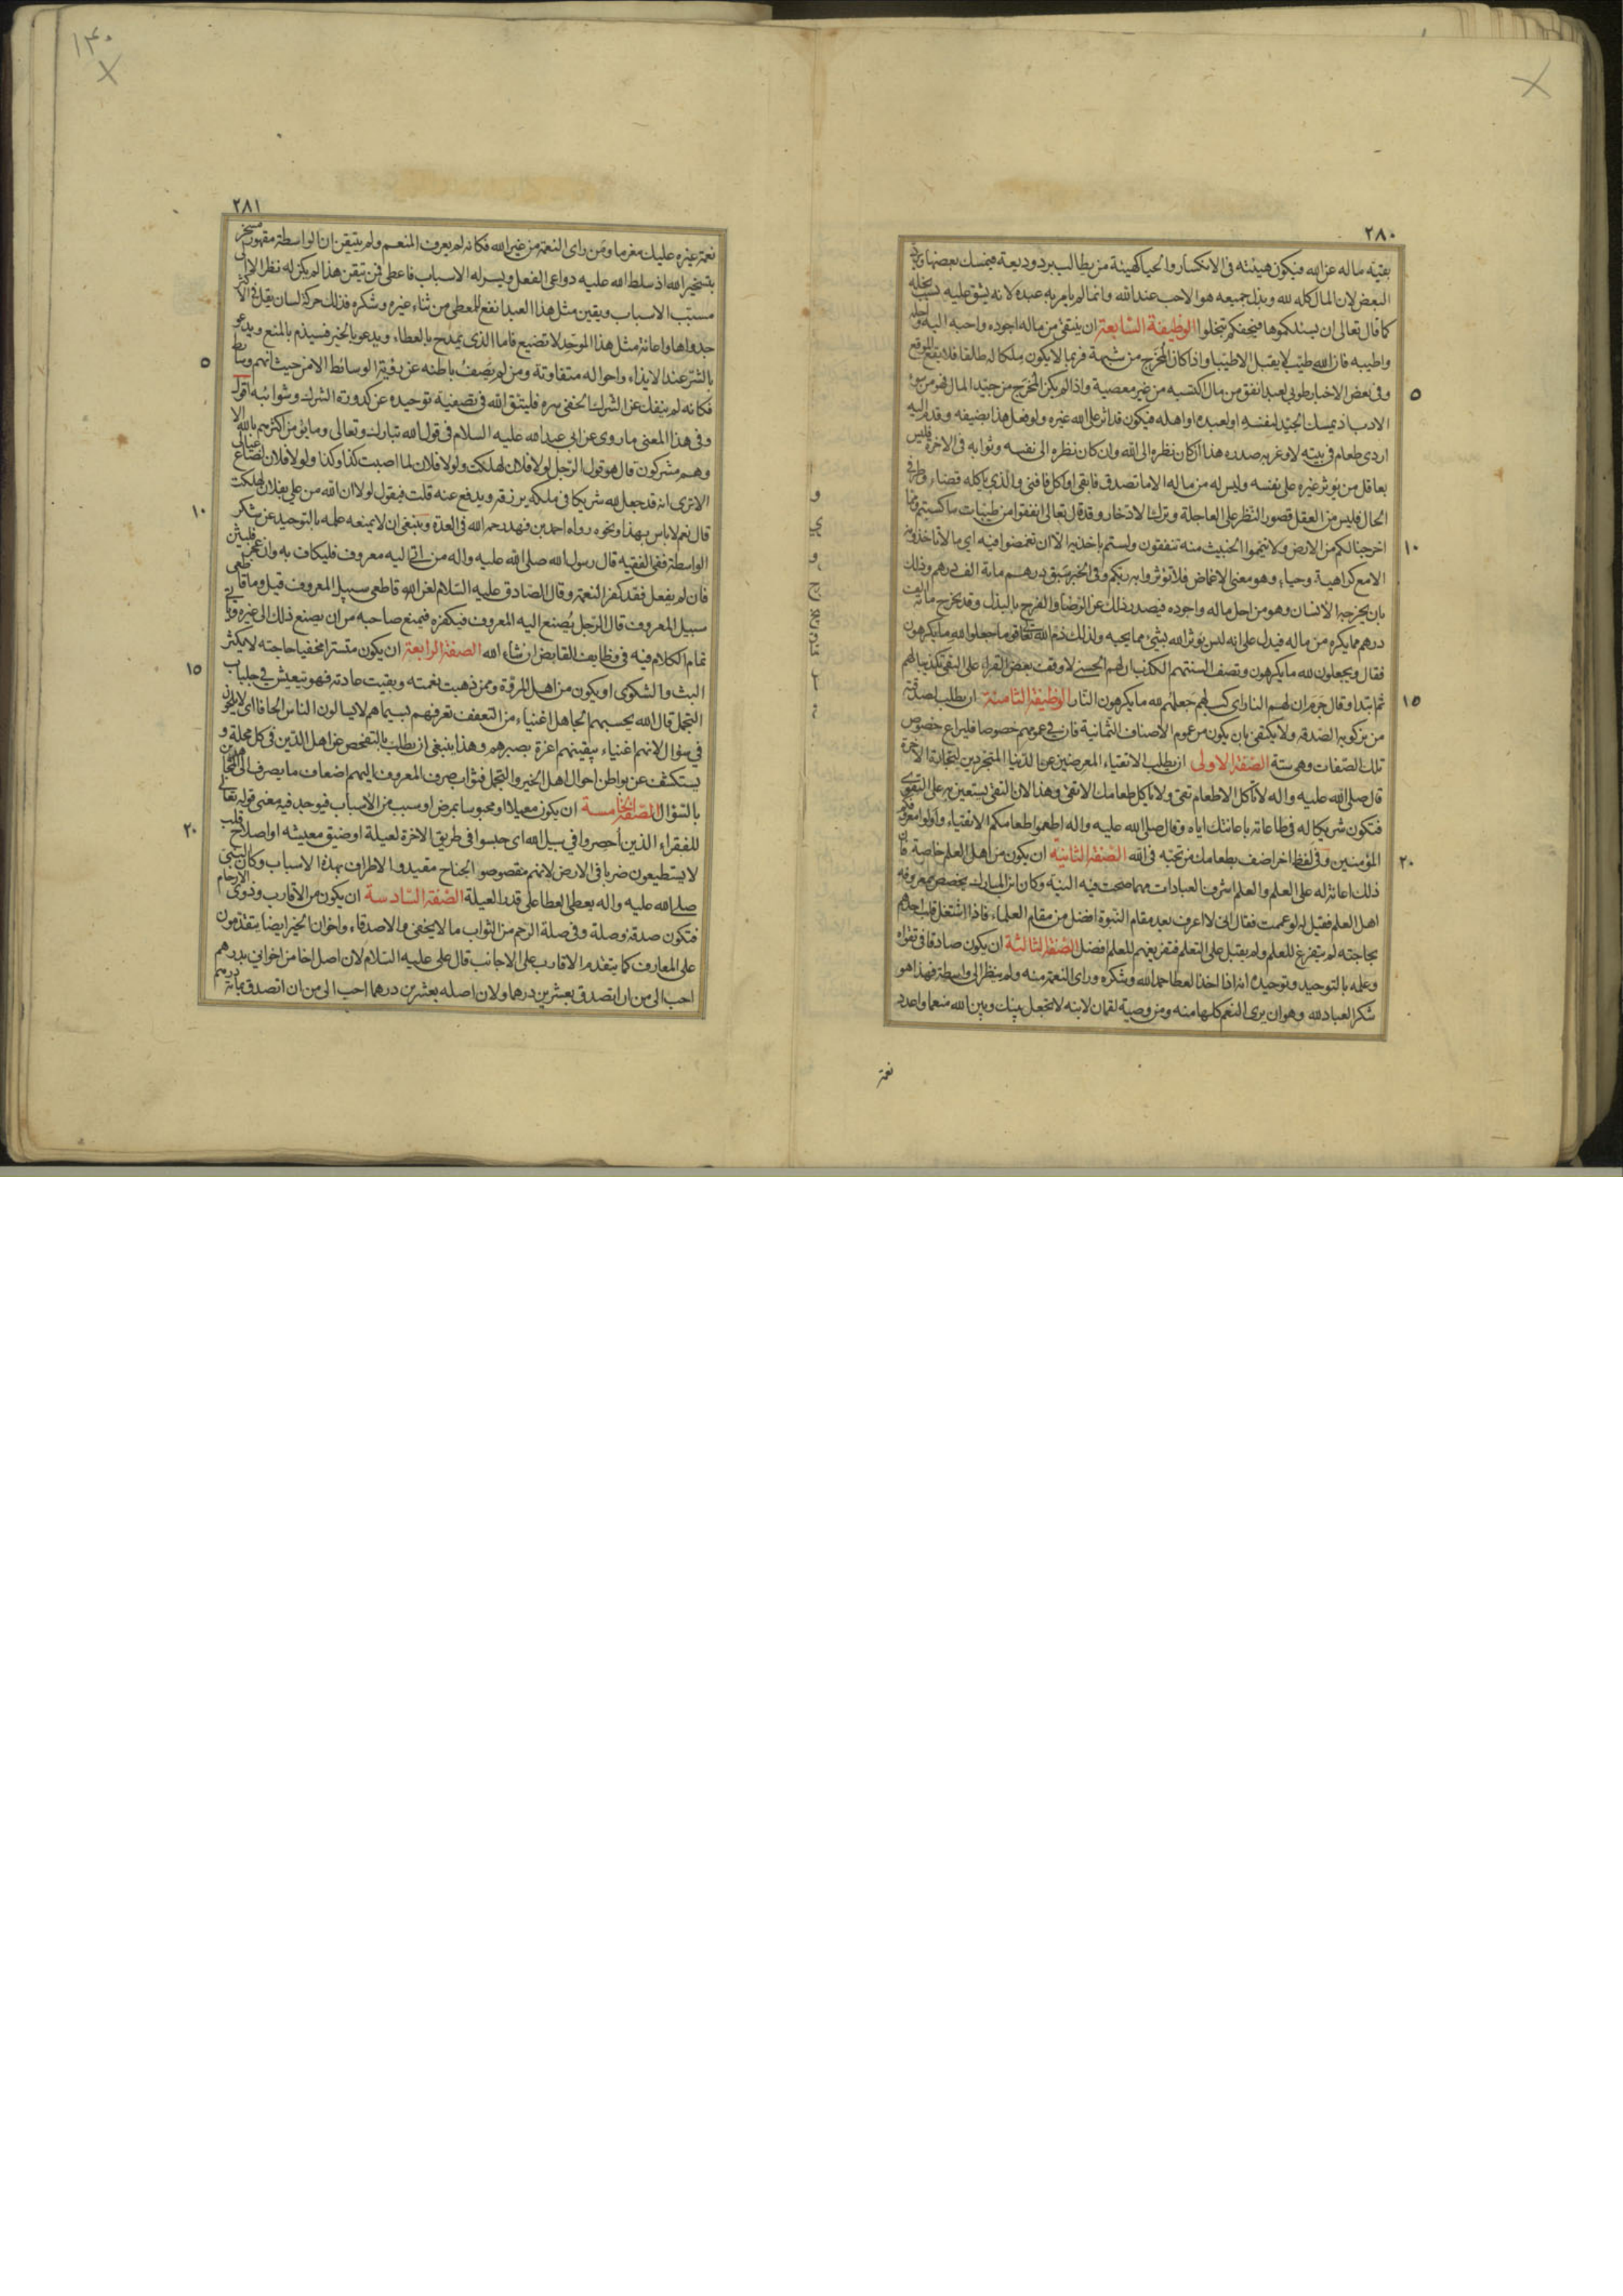 ٢٨٠
بقيته ساله عز الله فيكون هيئته في الانكسار والحيا كهيئة من يطالب برد وديعة فيمسك بعضها ويرد
البعض لان المال كله لله وبذل جميعه هو الاحب عند الله وانما لم يامر به عبده لانه يشق عليه بسبب بخله
كما قال تعالى ان يسئلكموها فيحفكم تبخلوا الوظيفة السابعة ان ينتقي من ماله اجوده واحبه اليه واجله
واطيبه فان الله طيب لا يقبل الا طيبا واذا كان المخرج من شبهة فربما لا يكون ملكا له طالقا فلا يقع الموقع
وفي بعض الاخبار طوبى لعبد انفق من مال اكتسبه من غير معصية واذا لم يكن المخرج من جيد المال فهو من سوء
الادب اذ يمسك الجيد لنفسه او لعبده او اهله فيكون قد اثر على الله غيره ولو فعل هذا بضيفه وقدم اليه
اردى طعام في بيته لاوغر به صدره هذا ان كان نظره الى الله وان كان نظره الى نفسه وثوابه في الاخرة فليس
بعاقل من يوثر غيره على نفسه وليس له من ماله الا ما تصدق فابقى او اكل فافنى والذي ياكله قضاء وطر في
الحال فليس من العقل قصور النظر على العاجلة وترك الادخار وقد قال تعالى انفقوا من طيبات ما كسبتم ومما
اخرجنا لكم من الارض ولا تيمموا الخبيث منه تنفقون ولستم باخذيه الا ان تغمضوا فيه اي ما لا تاخذونه
الا مع كراهية وحياء وهو معنى الاغماض فلا تؤثروا به ربكم وفي الخبر سبق درهم مائة الف درهم وذلك
بان يخرجه الانسان وهو من احل ماله واجوده فيصدر ذلك عن الرضا والفرح بالبذل وقد يخرج مائة الف
درهم مما يكره من ماله فيدل على انه ليس يوثر الله بشئ مما يحبه ولذلك ذم الله تعالى قوما جعلوا لله ما يكرهون
فقال ويجعلون لله ما يكرهون وتصف السنتهم الكذب ان لهم الحسنى لا وقف بعض القراء على النفي تكذيبا لهم
ثم ابتدا وقال جرم ان لهم النار اي كسب لهم جعلهم لله ما يكرهون النار الوظيفة الثامنة ان يطلب لصدقته
من تزكو به الصدقة ولا يكتفي بان يكون من عموم الاصناف الثمانية فان في عمومهم خصوصا فليراع خصوص
تلك الصفات وهي ستة الصفة الاولى ان يطلب الاتقياء المعرضين عن الدنيا المتجردين لتجارة الاخرة
قال صلى الله عليه واله لا تاكل الا طعام تقي ولا ياكل طعامك الا تقي وهذا لان التقي يستعين به على التقوى
فتكون شريكا له في طاعاته باعانتك اياه وقال صلى الله عليه واله اطعموا طعامكم الاتقياء واولوا معروفكم
المؤمنين وفي لفظ اخر اضف بطعامك من تحبه في الله الصفة الثانية ان يكون من اهل العلم خاصة فان
ذلك اعانة له على العلم والعلم اشرف العبادات مهما صحت فيه النية وكان ابن المبارك يخصص معروفه
اهل العلم فقيل له لو عممت فقال اني لا اعرف بعد مقام النبوة افضل من مقام العلماء فاذا اشتغل قلب احدهم
بحاجته لم يتفرغ للعلم ولم يقبل على التعلم فتفريغهم للعلم افضل الصفة الثالثة ان يكون صادقا في تقواه
وعلمه بالتوحيد وتوحيده انه اذا اخذ العطا حمد الله وشكره وراى النعمة منه ولم ينظر الى واسطة فهذا هو
شكر العباد لله وهو ان يرى النعم كلها منه ومن وصية لقمان لابنه لا تجعل بينك وبين الله منعما واعدد
نعمة
٥
١٠
١٥
٢٠
١٤٠
٢٨١
نعمة غيره عليك مغرما ومن راى النعمة من غير الله فكانه لم يعرف المنعم ولم يتيقن ان الواسطة مقهور مسخر
بتسخير الله اذ سلط الله عليه دواعي الفعل ويسر له الاسباب فاعطى فمن تيقن هذا لم يكن له نظر الا الى
مسبب الاسباب ويقين مثل هذا العبد انفع للمعطي من ثناء غيره وشكره فذلك حركة لسان يقل في الاكثر
جدواها واعانة مثل هذا الموحد لا تضيع فاما الذي يمدح بالعطاء ويدعو بالخير فسيذم بالمنع ويدعو
بالشر عند الايذاء واحواله متفاوتة ومن لم يصف باطنه عن رؤية الوسائط الا من حيث انهم وسائط
فكانه لم ينفك عن الشرك الخفي سره فليتق الله في تصفية توحيده عن كدورة الشرك وشوائبه اقول
وفي هذا المعنى ما روي عن ابي عبد الله عليه السلام في قول الله تبارك وتعالى وما يؤمن اكثرهم بالله الا
وهم مشركون قال هو قول الرجل لولا فلان لهلكت ولولا فلان لما اصبت كذا وكذا ولولا فلان لضاع عيالي
الا ترى انه قد جعل لله شريكا في ملكه يرزقه ويدفع عنه قلت فيقول لولا ان الله من علي بفلان لهلكت
قال نعم لا باس بهذا ونحوه رواه احمد بن فهد رحمه الله في العدة وينبغي ان لا يمنعه علمه بالتوحيد عن شكر
الواسطة ففي الفقيه قال رسول الله صلى الله عليه واله من اتي اليه معروف فليكاف به وان عجز فليثن
فان لم يفعل فقد كفر النعمة وقال الصادق عليه السلام لعن الله قاطعي سبيل المعروف قيل وما قاطعي
سبيل المعروف قال الرجل يصنع اليه المعروف فيكفره فيمنع صاحبه من ان يصنع ذلك الى غيره وياتي
تمام الكلام فيه في وظايف القابض ان شاء الله الصفة الرابعة ان يكون متسترا مخفيا حاجته لا يكثر
البث والشكوى او يكون من اهل المروة وممن ذهبت نعمته وبقيت عادته فهو يتعيش في جلباب
التجمل قال الله يحسبهم الجاهل اغنياء من التعفف تعرفهم بسيماهم لا يسالون الناس الحافا اي لا يلحون
في سؤال لانهم اغنياء بيقينهم اعزة بصبرهم وهذا ينبغي ان يطلب بالتفحص عن اهل الدين في كل محلة و
يستكشف عن بواطن احوال اهل الخير والتجمل فثواب صرف المعروف اليهم اضعاف ما يصرف الى المجاهرين
بالسؤال الصفة الخامسة ان يكون معيلا او محبوسا بمرض او سبب من الاسباب فيوجد فيه معنى قوله تعالى
للفقراء الذين احصروا في سبيل الله اي حبسوا في طريق الاخرة لعيلة او ضيق معيشه او اصلاح قلب
لا يستطيعون ضربا في الارض لانهم مقصوصوا الجناح مقيدوا الاطراف بهذه الاسباب وكان النبي
صلى الله عليه واله يعطي العطا على قدر العيلة الصفة السادسة ان يكون من الاقارب وذوي الارحام
فتكون صدقة وصلة وفي صلة الرحم من الثواب ما لا يخفى والاصدقاء واخوان الخير ايضا يتقدمون
على المعارف كما يتقدم الاقارب على الاجانب قال علي عليه السلام لان اصل اخا من اخواني بدرهم
احب الي من ان اتصدق بعشرين درهما ولان اصله بعشرين درهما احب الي من ان اتصدق بمائة درهم
٥
١٠
١٥
٢٠